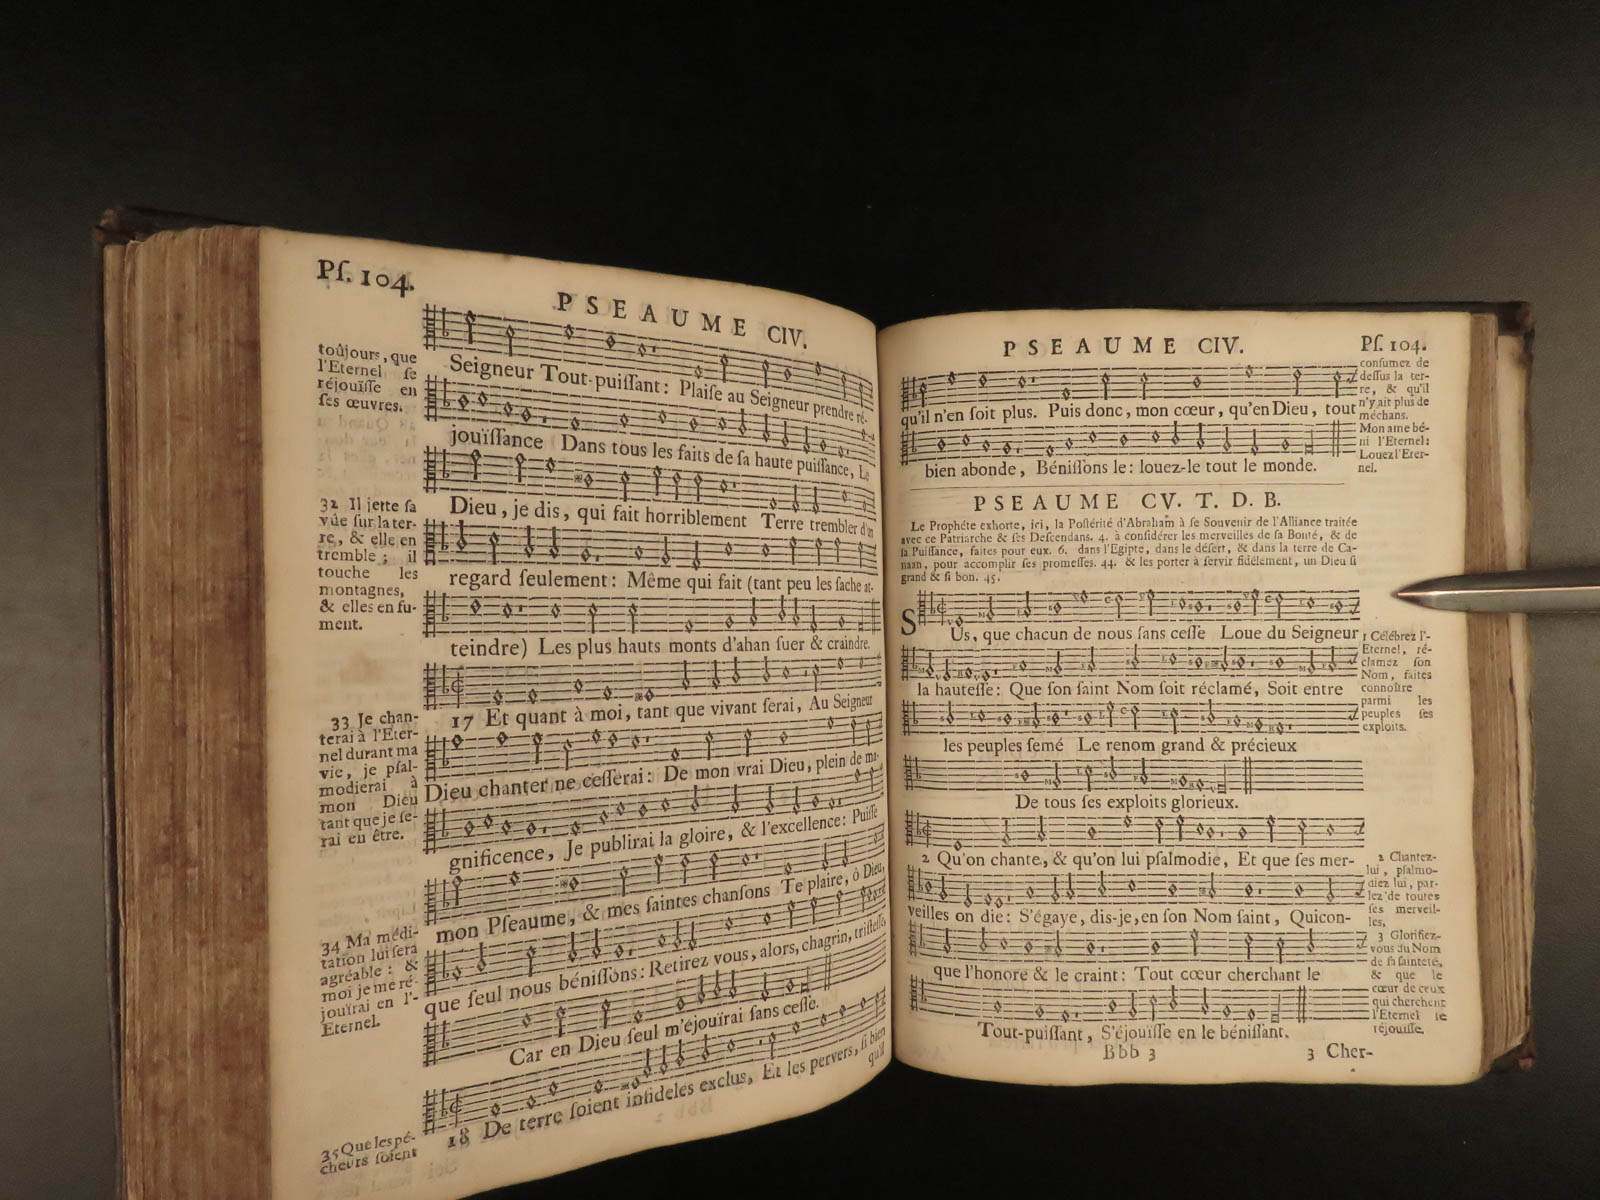 Pſ. 104.
PSEAUME CIV.
toûjours, que
l'Eternel ſe
réjouïſſe en
ſes œuvres.
Seigneur Tout-puiſſant: Plaiſe au Seigneur prendre ré-
jouïſſance Dans tous les faits de ſa haute puiſſance, Le
32 Il jette ſa
vûe ſur la ter-
re, & elle en
tremble; il
touche les
montagnes,
& elles en fu-
ment.
Dieu, je dis, qui fait horriblement Terre trembler d'un
regard ſeulement: Même qui fait (tant peu les ſache at-
teindre) Les plus hauts monts d'ahan ſuer & craindre.
33 Je chan-
terai à l'Eter-
nel durant ma
vie, je pſal-
modierai à
mon Dieu
tant que je ſe-
rai en être.
17 Et quant à moi, tant que vivant ſerai, Au Seigneur
Dieu chanter ne ceſſerai: De mon vrai Dieu, plein de ma-
gnificence, Je publirai la gloire, & l'excellence: Puiſſe
mon Pſeaume, & mes ſaintes chanſons Te plaire, ô Dieu,
34 Ma médi-
tation lui ſera
agréable: &
moi je me ré-
jouïrai en l'-
Eternel.
que ſeul nous béniſſons: Retirez vous, alors, chagrin, triſteſſe,
Car en Dieu ſeul m'éjouïrai ſans ceſſe.
35 Que les pé-
cheurs ſoient
18 De terre ſoient infideles exclus, Et les pervers, ſi bien
qu'il
PSEAUME CIV.
Pſ. 104.
conſumez de
deſſus la ter-
re, & qu'il
n'y ait plus de
méchans.
Mon ame bé-
ni l'Eternel:
Louez l'Eter-
nel.
qu'il n'en ſoit plus. Puis donc, mon cœur, qu'en Dieu, tout
bien abonde, Béniſſons le: louez-le tout le monde.
PSEAUME CV. T. D. B.
Le Prophéte exhorte, ici, la Poſtérité d'Abraham à ſe Souvenir de l'Alliance traitée
avec ce Patriarche & ſes Deſcendans. 4. à conſidérer les merveilles de ſa Bonté, & de
ſa Puiſſance, faites pour eux. 6. dans l'Egipte, dans le déſert, & dans la terre de Ca-
naan, pour accomplir ſes promeſſes. 44. & les porter à ſervir fidélement, un Dieu ſi
grand & ſi bon. 45.
SUs, que chacun de nous ſans ceſſe Loue du Seigneur
la hauteſſe: Que ſon ſaint Nom ſoit réclamé, Soit entre
les peuples ſemé Le renom grand & précieux
De tous ſes exploits glorieux.
1 Célébrez l'-
Eternel, ré-
clamez ſon
Nom, faites
connoître
parmi les
peuples ſes
exploits.
2 Qu'on chante, & qu'on lui pſalmodie, Et que ſes mer-
veilles on die: S'égaye, dis-je, en ſon Nom ſaint, Quicon-
que l'honore & le craint: Tout cœur cherchant le
Tout-puiſſant, S'éjouïſſe en le béniſſant.
2 Chantez-
lui, pſalmo-
diez lui, par-
lez de toutes
ſes merveil-
les,
3 Glorifiez-
vous du Nom
de ſi ſainteté,
& que le
cœur de ceux
qui cherchent
l'Eternel ſe
réjouïſſe.
Bbb 3
3 Cher-